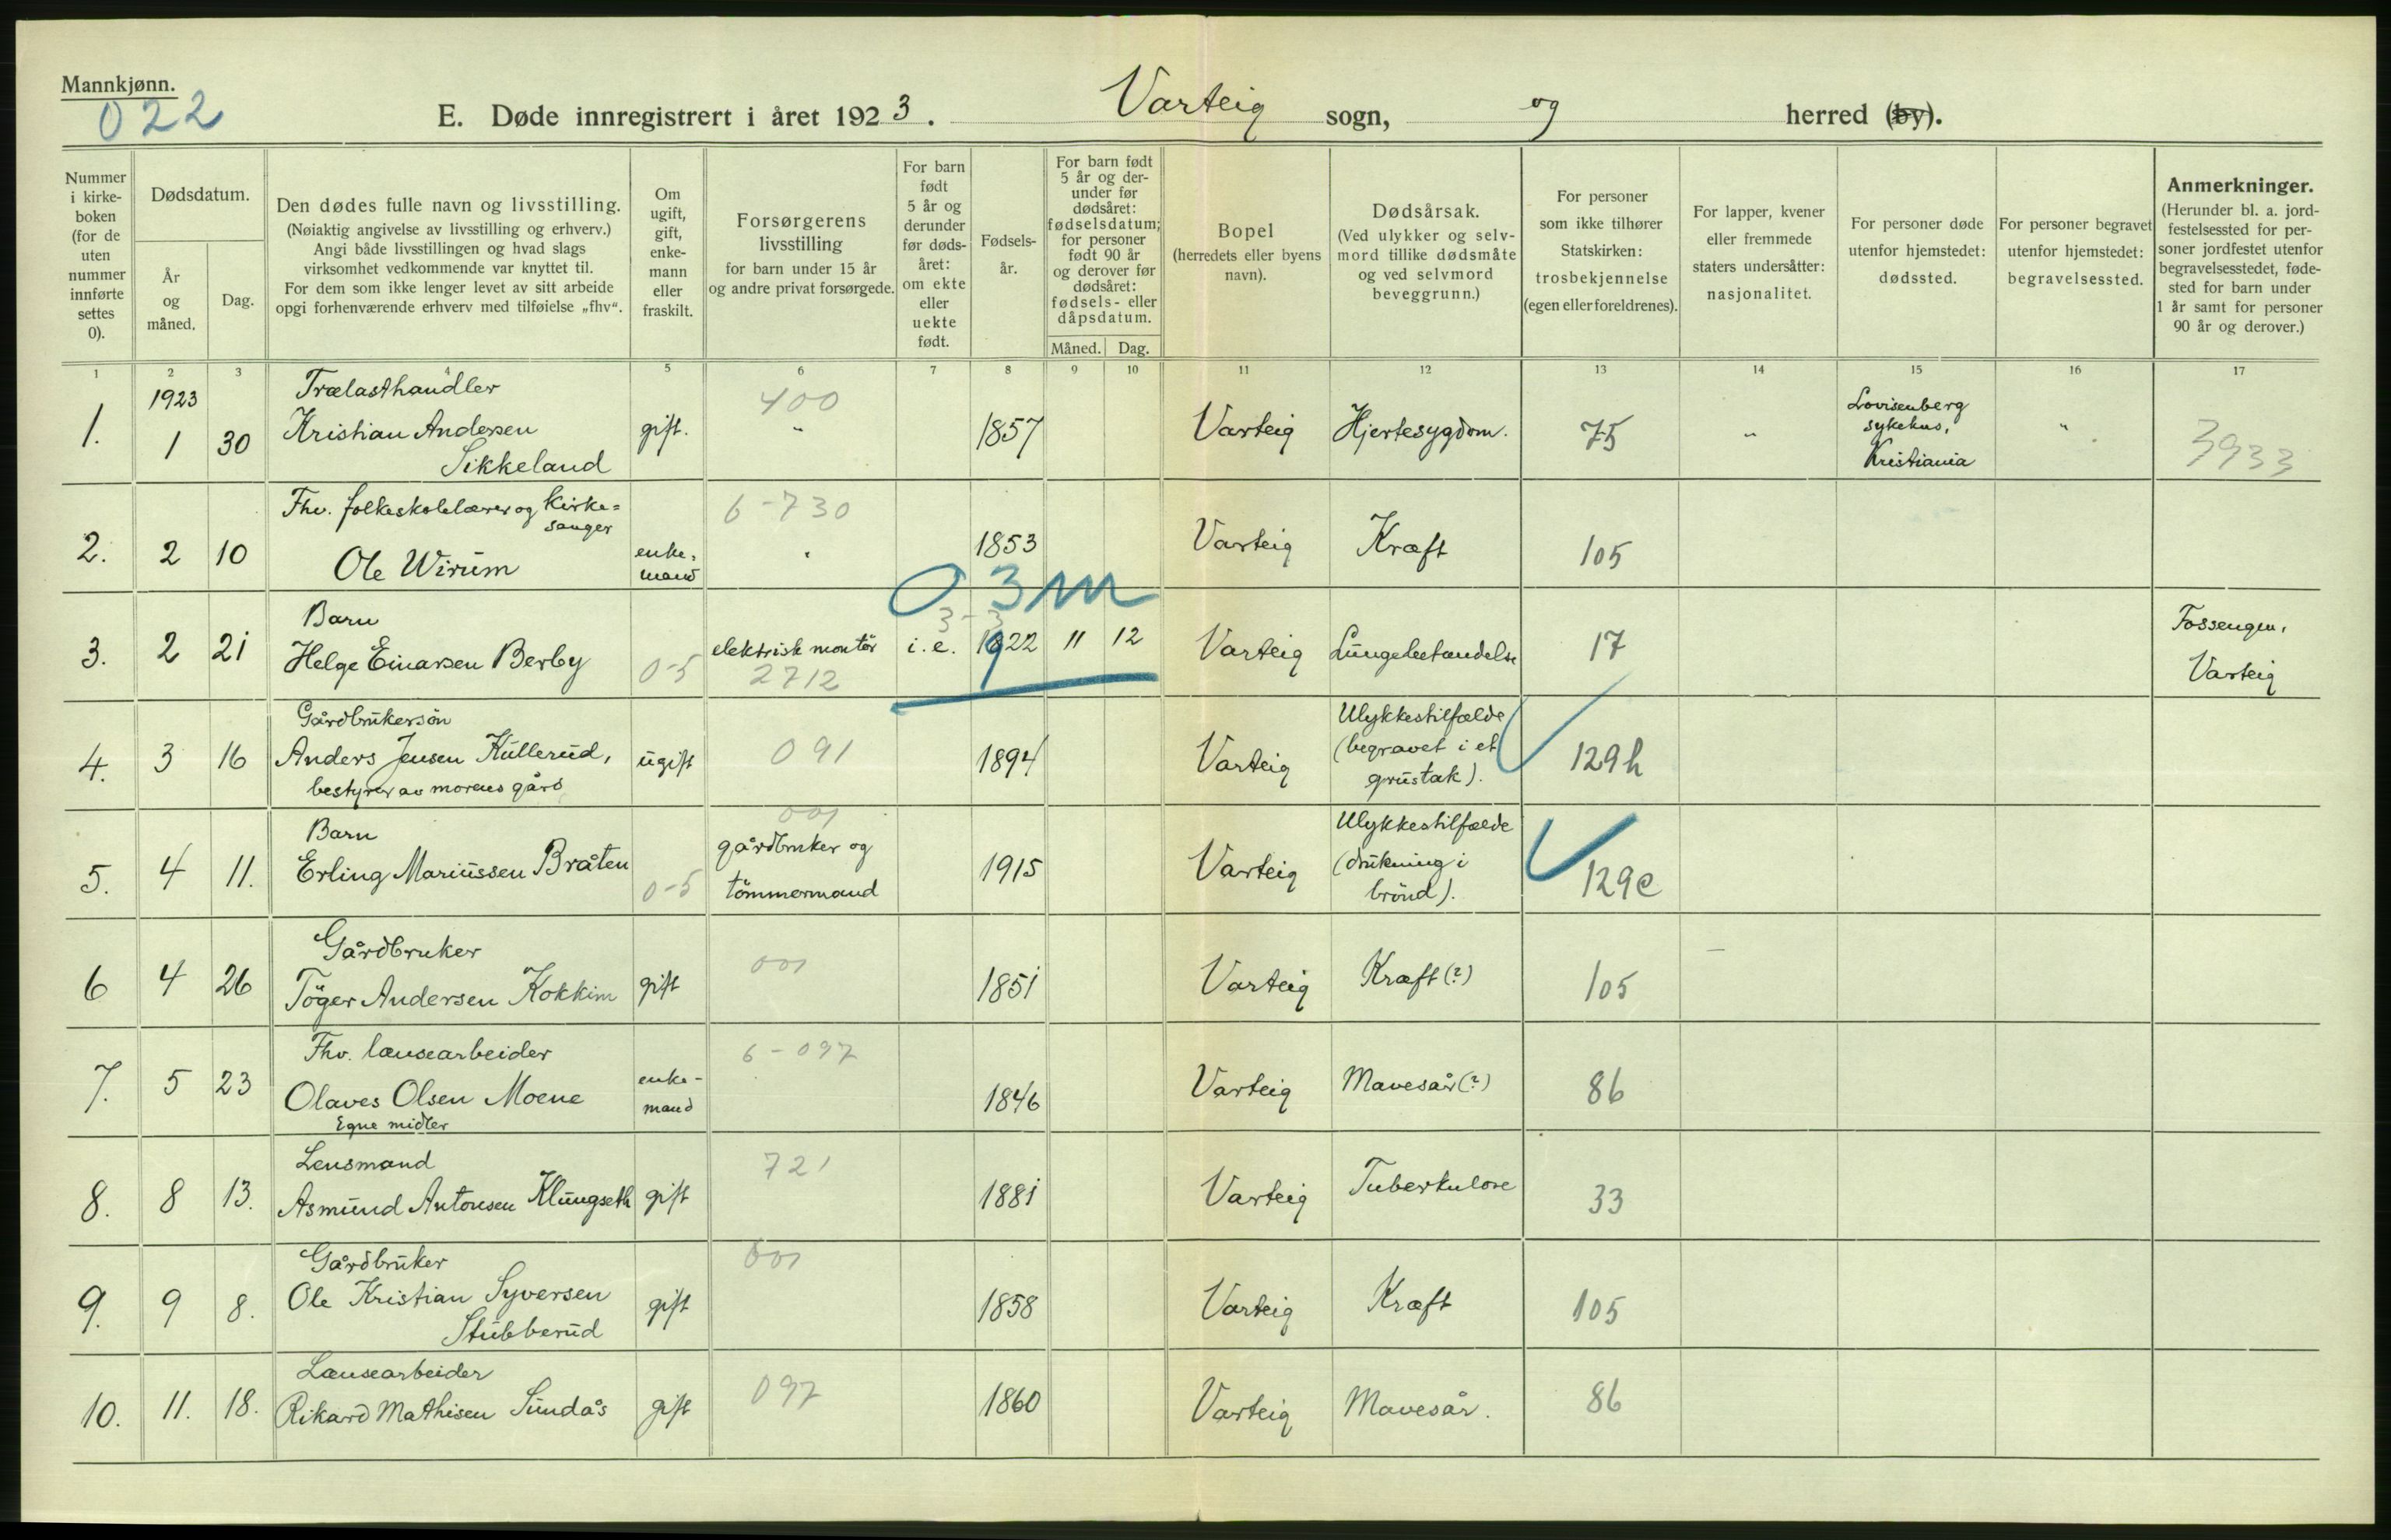 Mannkjønn.
022
E. Døde innregistrert i året 1923. Varteig sogn, og herred (by).
Nummer i kirke-boken (for de uten nummer innførte settes 0).
Dødsdatum.
År og måned.
Dag.
Den dødes fulle navn og livsstilling.
(Nøiaktig angivelse av livsstilling og erhverv.)
Angi både livsstillingen og hvad slags
virksomhet vedkommende var knyttet til.
For dem som ikke lenger levet av sitt arbeide
opgi forhenværende erhverv med tilføielse „fhv“.
Om ugift, gift, enke-mann eller fraskilt.
Forsørgerens livsstilling
for barn under 15 år
og andre privat forsørgede.
For barn født 5 år og derunder før døds-året: om ekte eller uekte født.
Fødsels-år.
For barn født 5 år og der-under før dødsåret: fødselsdatum; for personer født 90 år og derover før dødsåret: fødsels- eller dåpsdatum.
Måned. Dag.
Bopel
(herredets eller byens navn).
Dødsårsak.
(Ved ulykker og selv-mord tillike dødsmåte og ved selvmord beveggrunn.)
For personer som ikke tilhører Statskirken: trosbekjennelse (egen eller foreldrenes).
For lapper, kvener eller fremmede staters undersåtter: nasjonalitet.
For personer døde utenfor hjemstedet: dødssted.
For personer begravet utenfor hjemstedet: begravelsessted.
Anmerkninger.
(Herunder bl. a. jord-festelsessted for per-soner jordfestet utenfor begravelsesstedet, føde-sted for barn under 1 år samt for personer 90 år og derover.)
1 2 3 4 5 6 7 8 9 10 11 12 13 14 15 16 17
1. 1923 1 30 Trælasthandler Kristian Andersen Sikkeland gift. 400 " 1857 Varteig Hjertesygdom. 75 " Lovisenberg sykehus, Kristiania " 3933
2. 2 10 Fhv. folkeskolelærer og kirke=sanger Ole Wirum enke-mand 6-730 " 1853 Varteig Kræft 105
03m
3. 2 21 Barn Helge Einarsen Berby 0-5 elektrisk montör 2712 i. e. 3-3 1922 11 12 Varteig Lungebetændelse 17 Fossengen, Varteig
4. 3 16 Gårdbrukersön Anders Jensen Kullerud, bestyrer av morens gård ugift 091 1894 Varteig Ulykkestilfælde (begravet i et grustak). 129h
5. 4 11. Barn Erling Mariussen Bråten 0-5 001 gårdbruker og tömmermand 1915 Varteig Ulykkestilfælde (drukning i brönd). 129e
6 4 26 Gårdbruker Töger Andersen Kokkim gift 001 1851 Varteig Kræft (?) 105 –
7. 5 23 Fhv. lænsearbeider Olaves Olsen Moene Egne midler enke-mand 6-097 1846 Varteig Mavesår (?) 86
8. 8 13. Lensmand Asmund Antonsen Klungseth gift 721 1881 Varteig Tuberkulose 33
9. 9 8. Gårdbruker Ole Kristian Syversen Stubberud gift 001 1858 Varteig Kræft 105
10. 11. 18. Lænsearbeider Rikard Mathisen Sundås gift 097 1860 Varteig Mavesår. 86